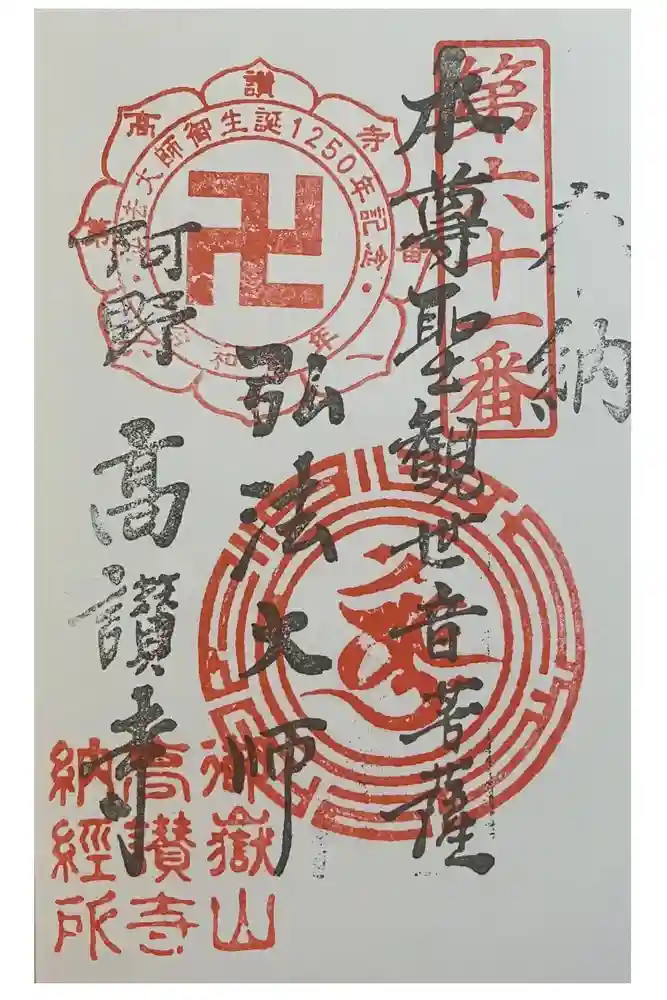 奉納
第六十一番
本尊聖観世音菩薩
弘法大師
阿野 高讃寺
高讃寺
弘法大師御生誕1250年記念
御嶽山
高讃寺
納経所